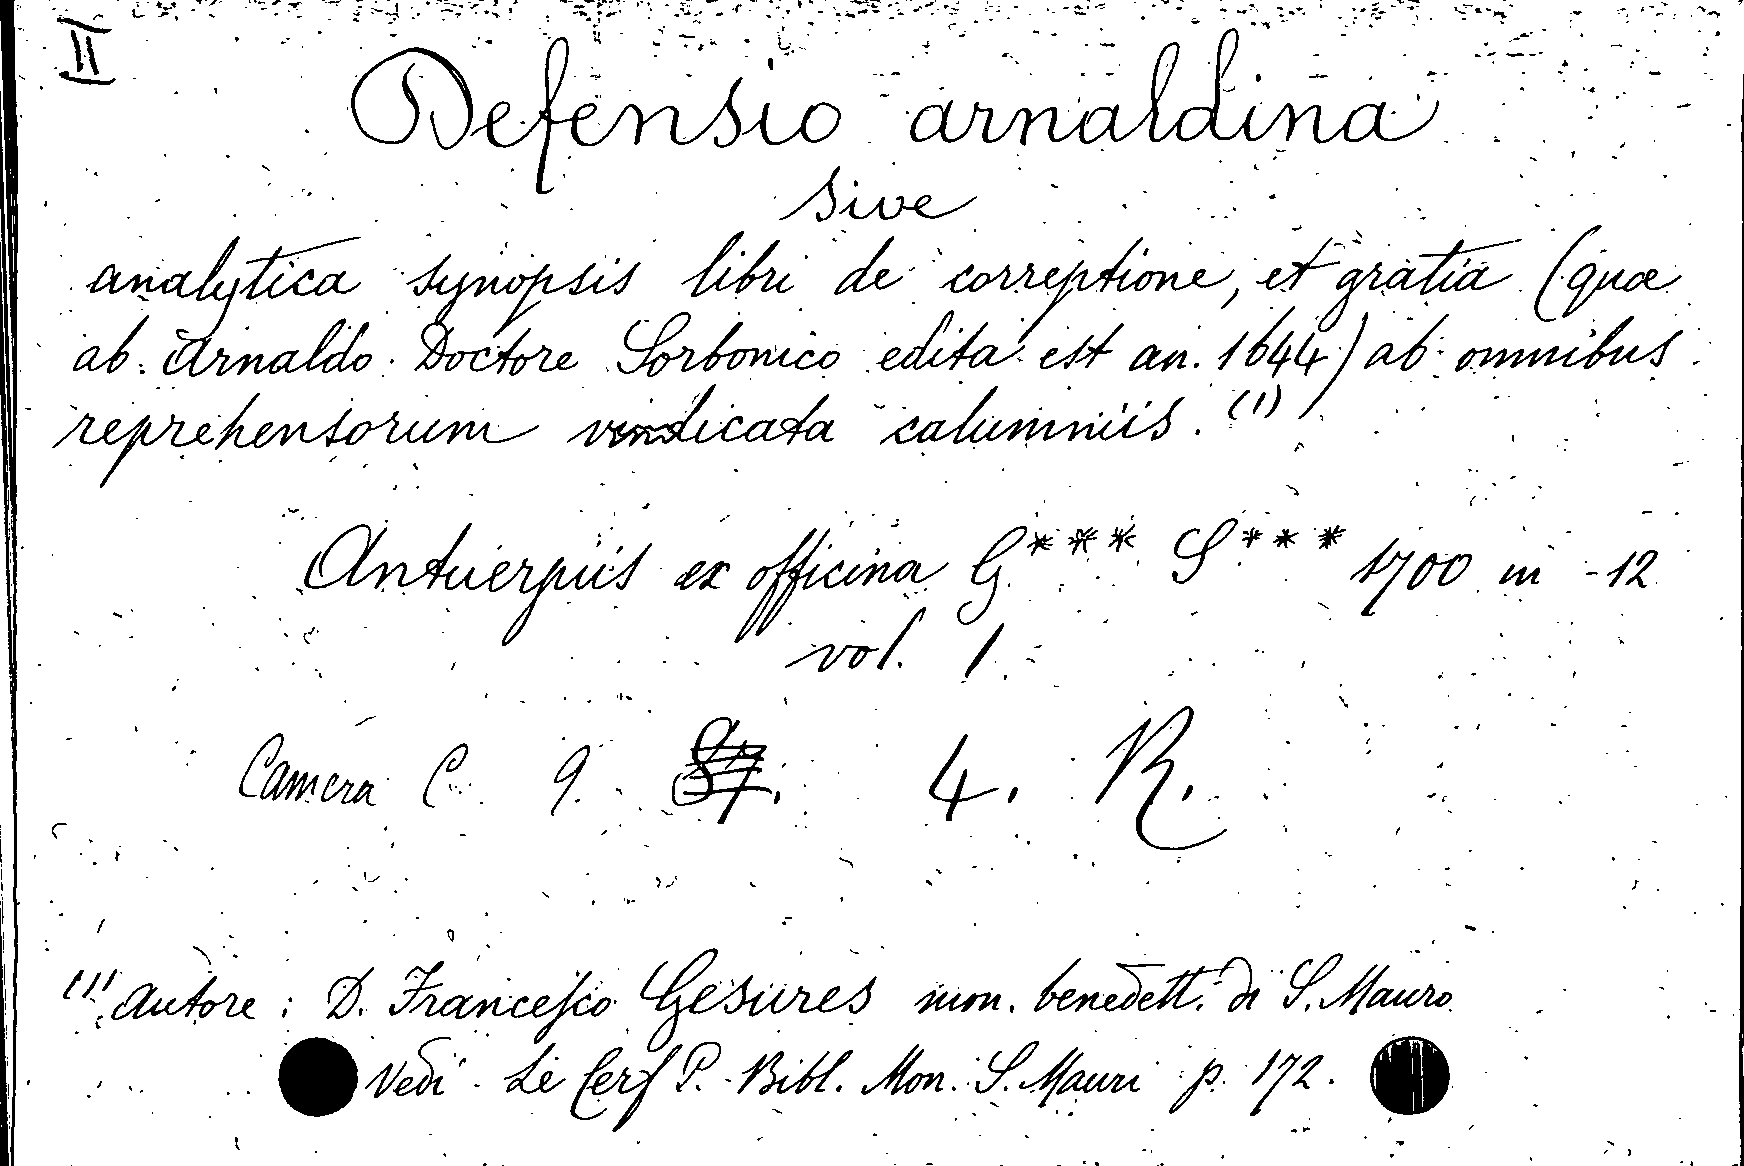 II
Defensio arnaldina
sive
analytica synopsis libri de correptione, et gratia (quæ
ab Arnaldo Doctore Sorbonico edita est an. 1644) ab omnibus
reprehensorum vindicata calumniis. (1)
Antuerpiis ex officina G*** S*** 1700 in -12
vol. 1.
Camera C. 9. 4. R.
(1) Autore: D. Francesco Gesures mon. benedett. di S. Mauro
Vedi Le Cerf P. Bibl. Mon. S. Mauri p. 172.